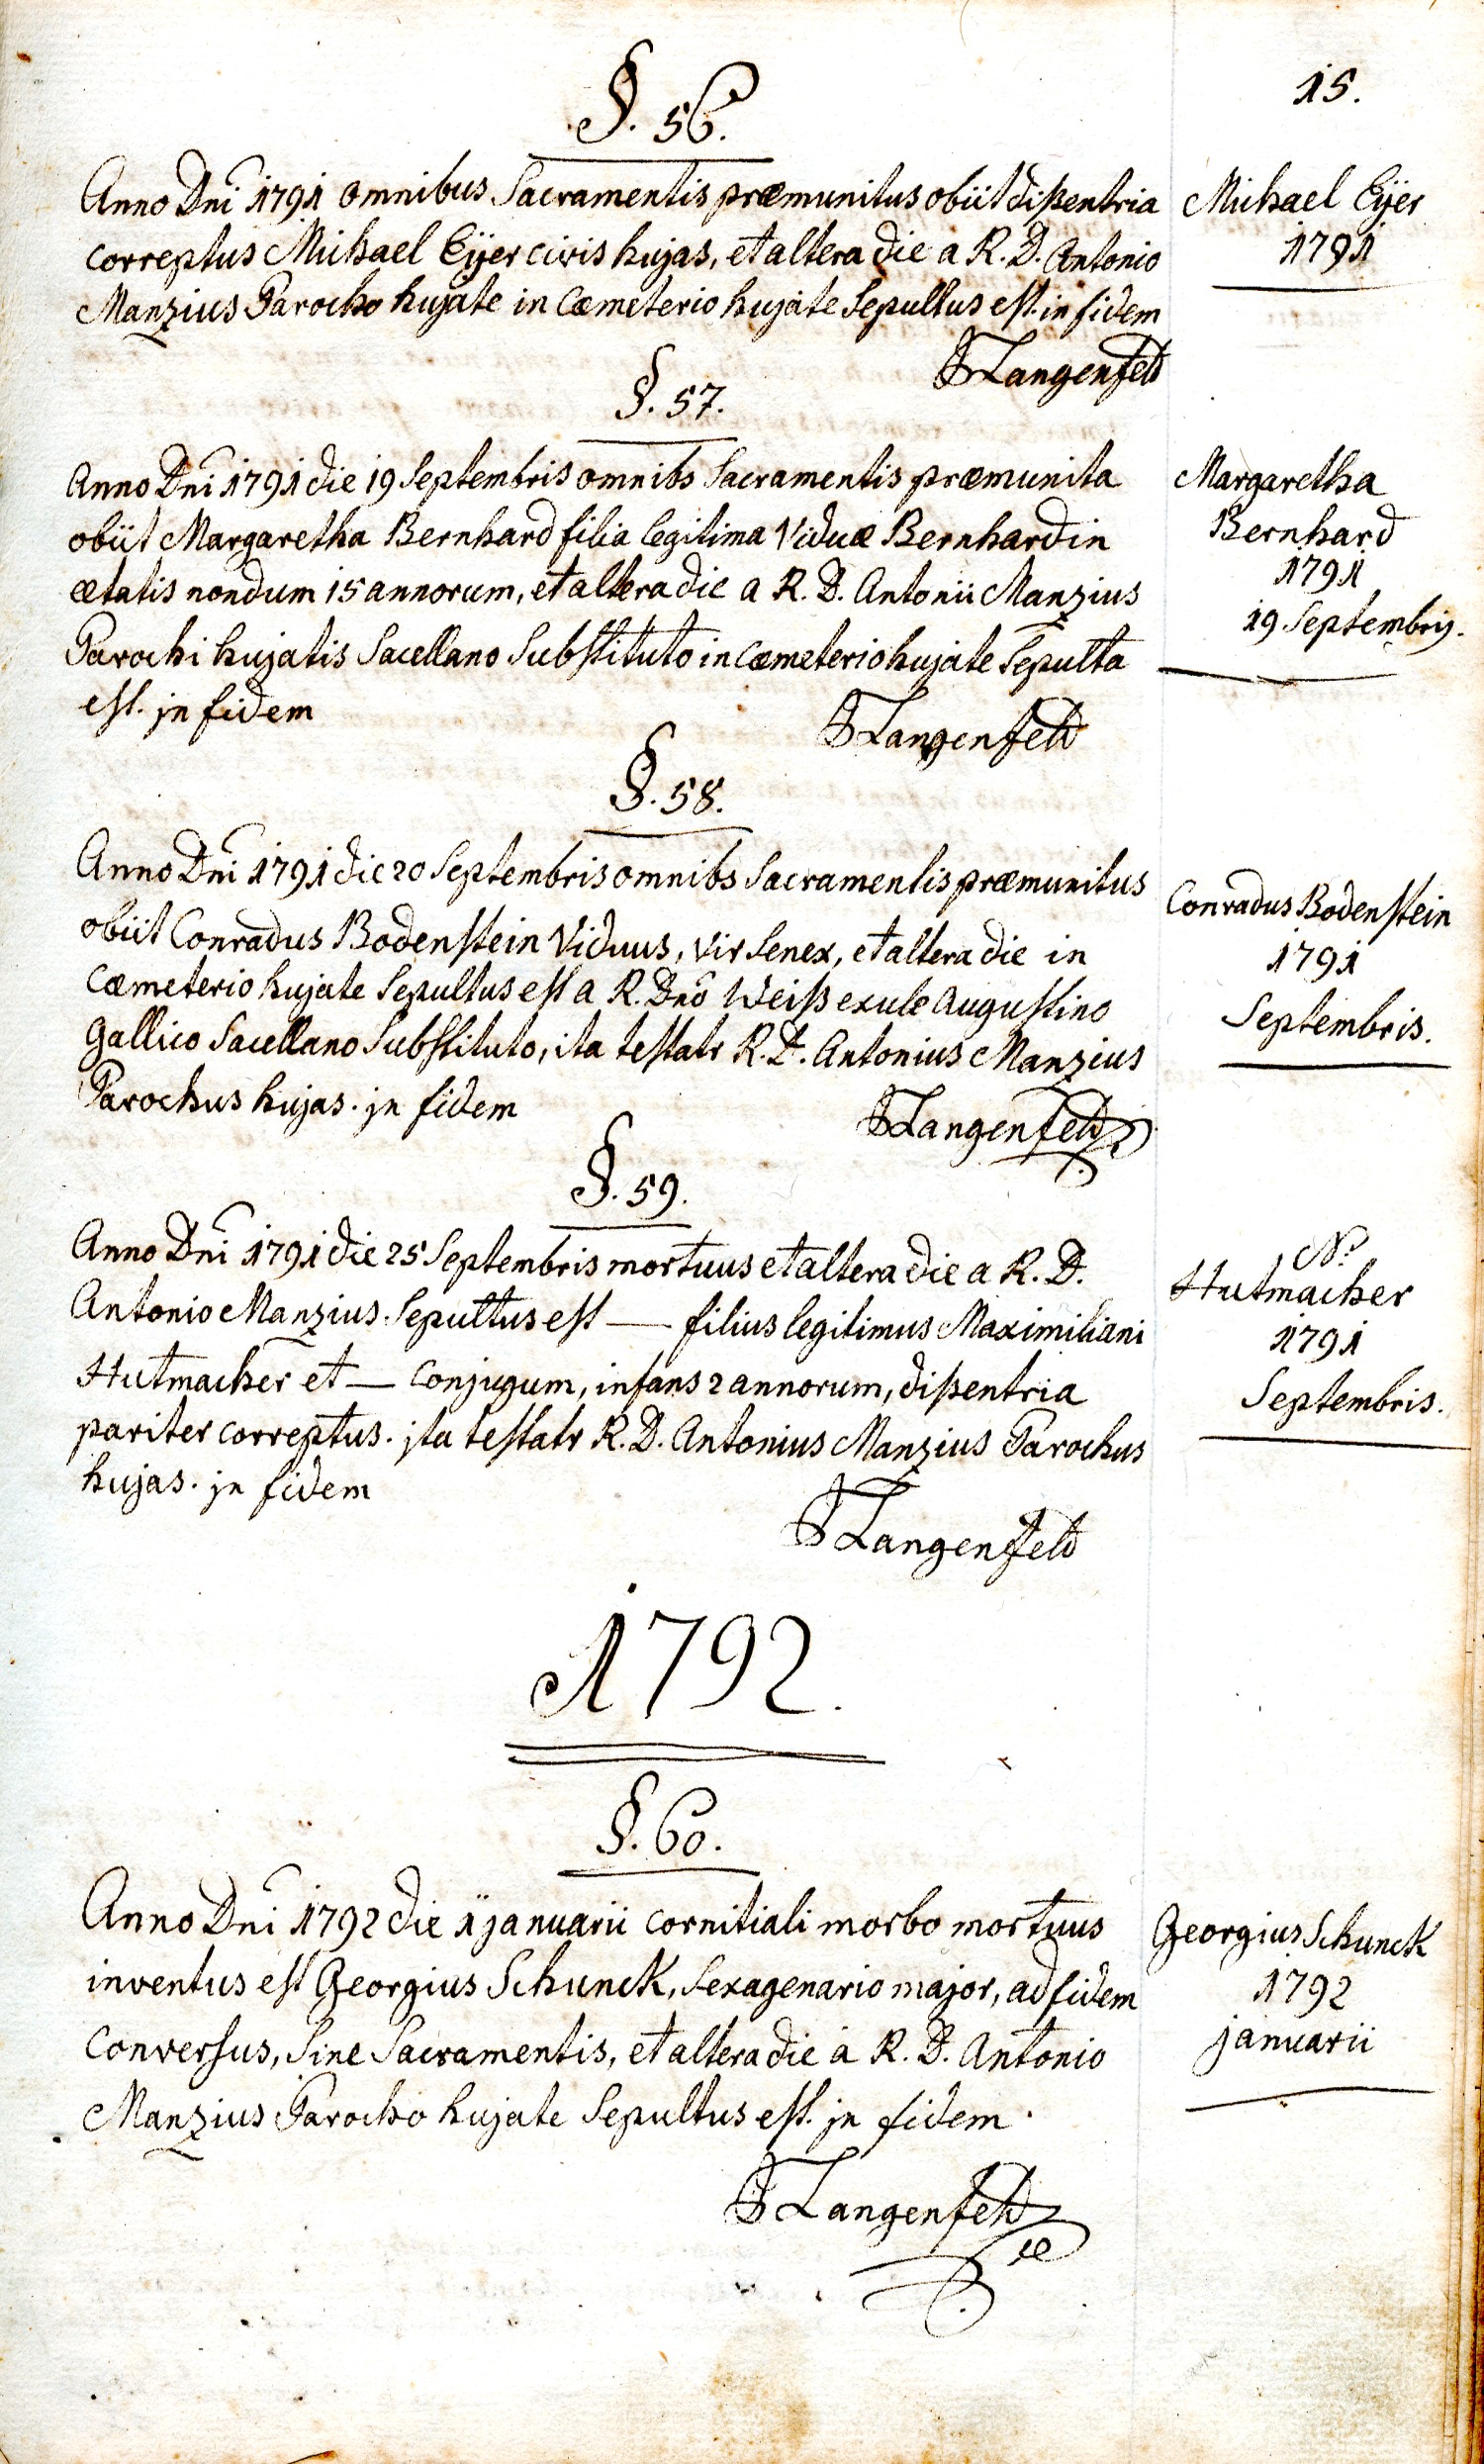 15.
§. 56.
Anno Dni 1791 omnibus Sacramentis præmunitus obiit dißentria
correptus Michael Eijer civis hujas, et altera die a R. D. Antonio
Manzius Parocho hujate in Cæmeterio hujate Sepultus est. in fidem
Langenfeld
Michael Eijer
1791
§. 57.
Anno Dni 1791 die 19 Septembris omnibs Sacramentis præmunita
obiit Margaretha Bernhard filia legitima Viduæ Bernhardin
ætatis nondum 15 annorum, et altera die a R. D. Antonii Manzius
Parochi hujatis Sacellano Substituto in Cæmeterio hujate Sepulta
est. jn fidem
Langenfeld
Margaretha
Bernhard
1791
19 Septembris.
§. 58.
Anno Dni 1791 die 20 Septembris omnibs Sacramentis præmunitus
obiit Conradus Bodenstein Viduus, vir Senex, et altera die in
Cæmeterio hujate Sepultus est a R. Dno Weiß exule Augustino
Gallico Sacellano Substituto, ita testatr R. D. Antonius Manzius
Parochus hujas. jn fidem
Langenfeld
Conradus Bodenstein
1791
Septembris.
§. 59.
Anno Dni 1791 die 25 Septembris mortuus et altera die a R. D.
Antonio Manzius Sepultus est — filius legitimus Maximiliani
Hutmacher et — Conjugum, infans 2 annorum, dißentria
pariter correptus. jta testatr R. D. Antonius Manzius Parochus
hujas. jn fidem
Langenfeld
N.
Hutmacher
1791
Septembris.
1792.
§. 60.
Anno Dni 1792 die 11 januarii cornitiali morbo mortuus
inventus est Georgius Schunck, Sexagenario major, ad fidem
Conversus, Sine Sacramentis, et altera die a R. D. Antonio
Manzius Parocho hujate Sepultus est. jn fidem.
Langenfeld
Georgius Schunck
1792
januarii